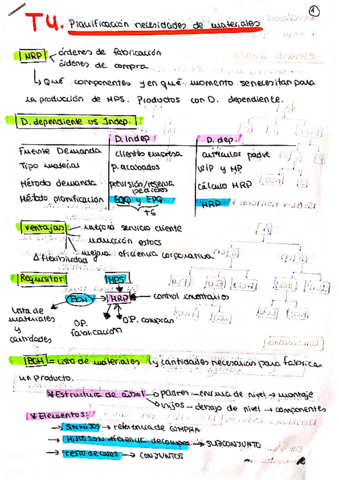 T4. Planificación necesidades de materiales
1
MRP órdenes de fabricación
órdenes de compra
Qué componentes y en qué momento se necesitan para
la producción de MPS. Productos con D. dependiente.
D. dependiente vs Indep.
D. Indep D. dep.
Fuente Demanda cliente empresa artículos padre
Tipo material P. acabados WIP y MP
Método demanda previsión/reserva cálculo MRP
pedidos
Método planificación EOQ y EPQ MRP
T6
Ventajas mejora servicio cliente
reducción stocks
mejora eficiencia corporativa
Δ flexibilidad
Requisitos MPS
BOM → MRP control inventarios
Lista de
materiales
y
cantidades
O.P.
fabricación
O.P. compras
BOM = lista de materiales y cantidades necesarias para fabricar
un producto.
* Estructura de árbol padres – encima de nivel → montaje
hijos – debajo de nivel → componentes
* Elementos:
→ SIN HIJOS → referencia de COMPRA
→ HIJOS SON referencia de compra → SUBCONJUNTO
→ resto de casos → CONJUNTOS